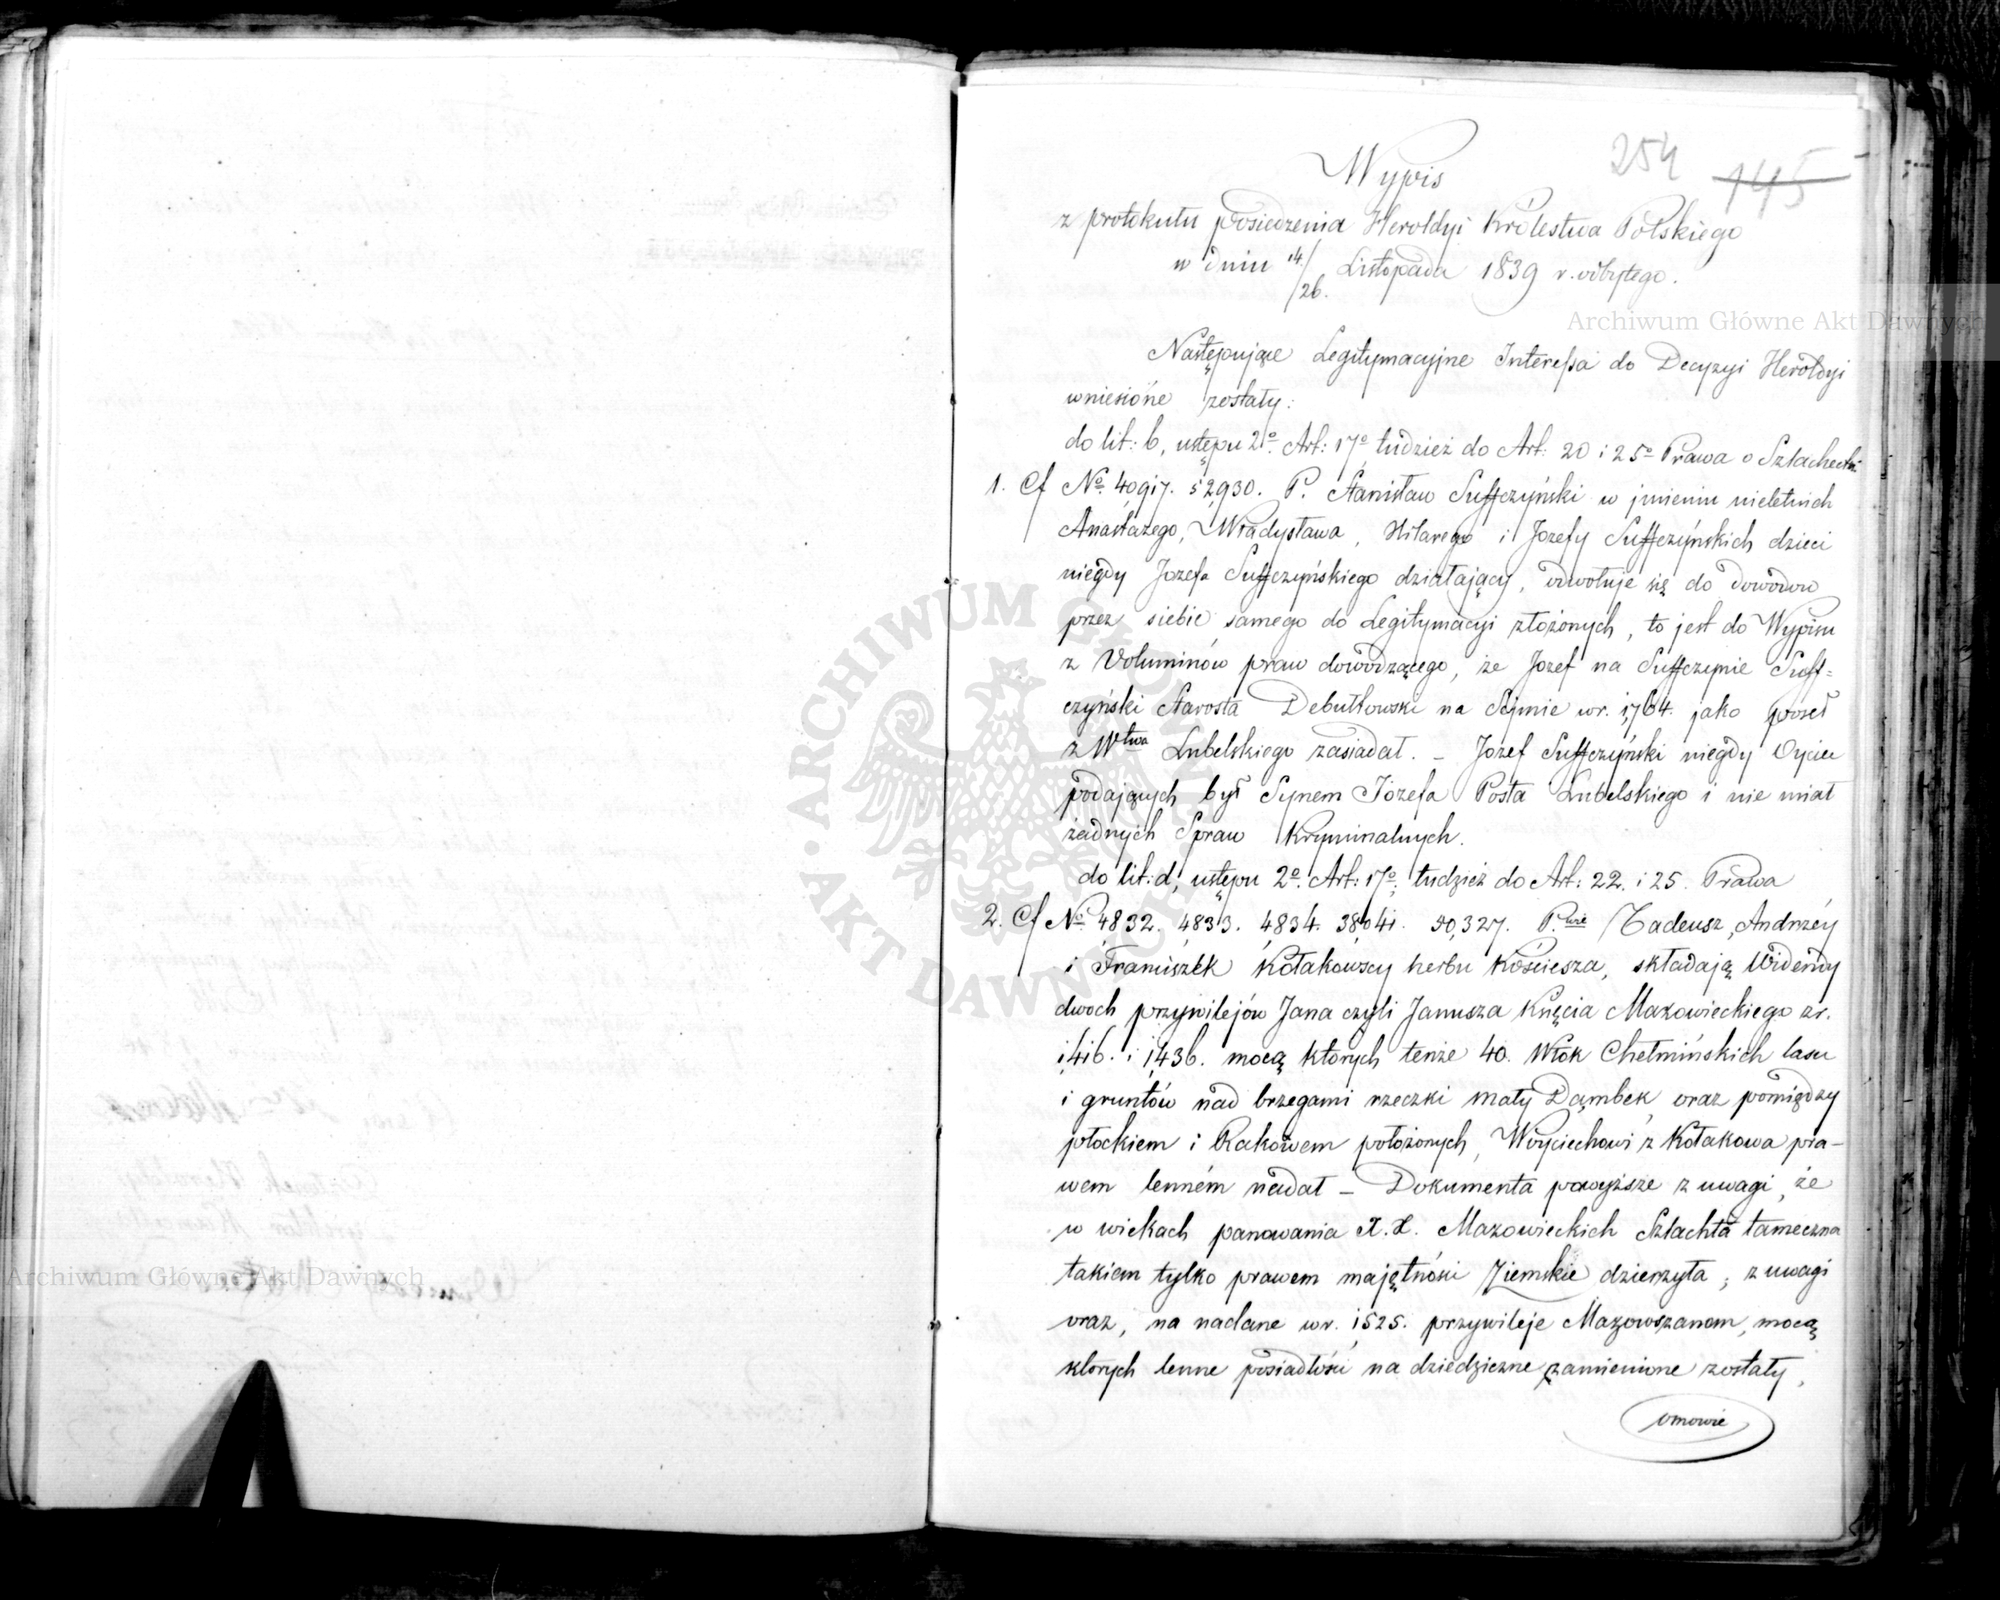 254 145
Wypis
z protokułu posiedzenia Heroldyi Królestwa Polskiego
w dniu 14/26. Listopada 1839 r. odbytego.
Archiwum Główne Akt Dawnych
Następujące Legitymacyjne Interessa do Decyzyi Heroldyi
wniesione zostały:
do lit: b, ustępu 2o. Art: 17o tudzież do Art: 20 i 25o Prawa o Szlachectwie
1. Cf No. 40917. 52930. P. Stanisław Suffczyński w jmieniu nieletnich
Anastazego, Władysława, Hilarego i Jozefy Suffczyńskich dzieci
niegdy Jozefa Suffczyńskiego działający, odwołuje się do dowodow
przez siebie samego do Legitymacyi złożonych, to jest do Wypisu
z Voluminów praw dowodzącego, że Jozef na Suffczynie Suff=
czyński Starosta Debułtowski na Sejmie w r. 1764. jako poseł
z Wtwa Lubelskiego zasiadał. – Jozef Suffczyński niegdy Ojciec
podających był Synem Józefa Posła Lubelskiego i nie miał
żadnych Spraw Kryminalnych.
do lit: d, ustępu 2o. Art: 17o, tudzież do Art: 22. i 25. Prawa
2. Cf No. 4832. 4833. 4834. 38041. 50,327. P.wie Tadeusz, Andrzéy
i Franciszek Kołakowscy herbu Kościesza, składają Widendy
dwoch przywilejów Jana czyli Janusza Xięcia Mazowieckiego z r.
1416. i 1436. mocą których tenże 40. Włók Chełmińskich lasu
i gruntów nad brzegami rzeczki mały Dąmbek, oraz pomiędzy
płockiem i Rakowem położonych, Woyciechowi z Kołakowa pra–
wem lenném nadał – Dokumenta powyższe z uwagi, że
w wiekach panowania X.X. Mazowieckich Szlachta tameczna
takiem tylko prawem majętności Ziemskie dzierzyła; z uwagi
oraz, na nadane w r. 1525. przywileje Mazowszanom, mocą
ktorych lenne posiadłości na dziedziczne zamienione zostały,
omowie
Archiwum Główne Akt Dawnych
ARCHIWUM GŁÓWNE AKT DAWNYCH